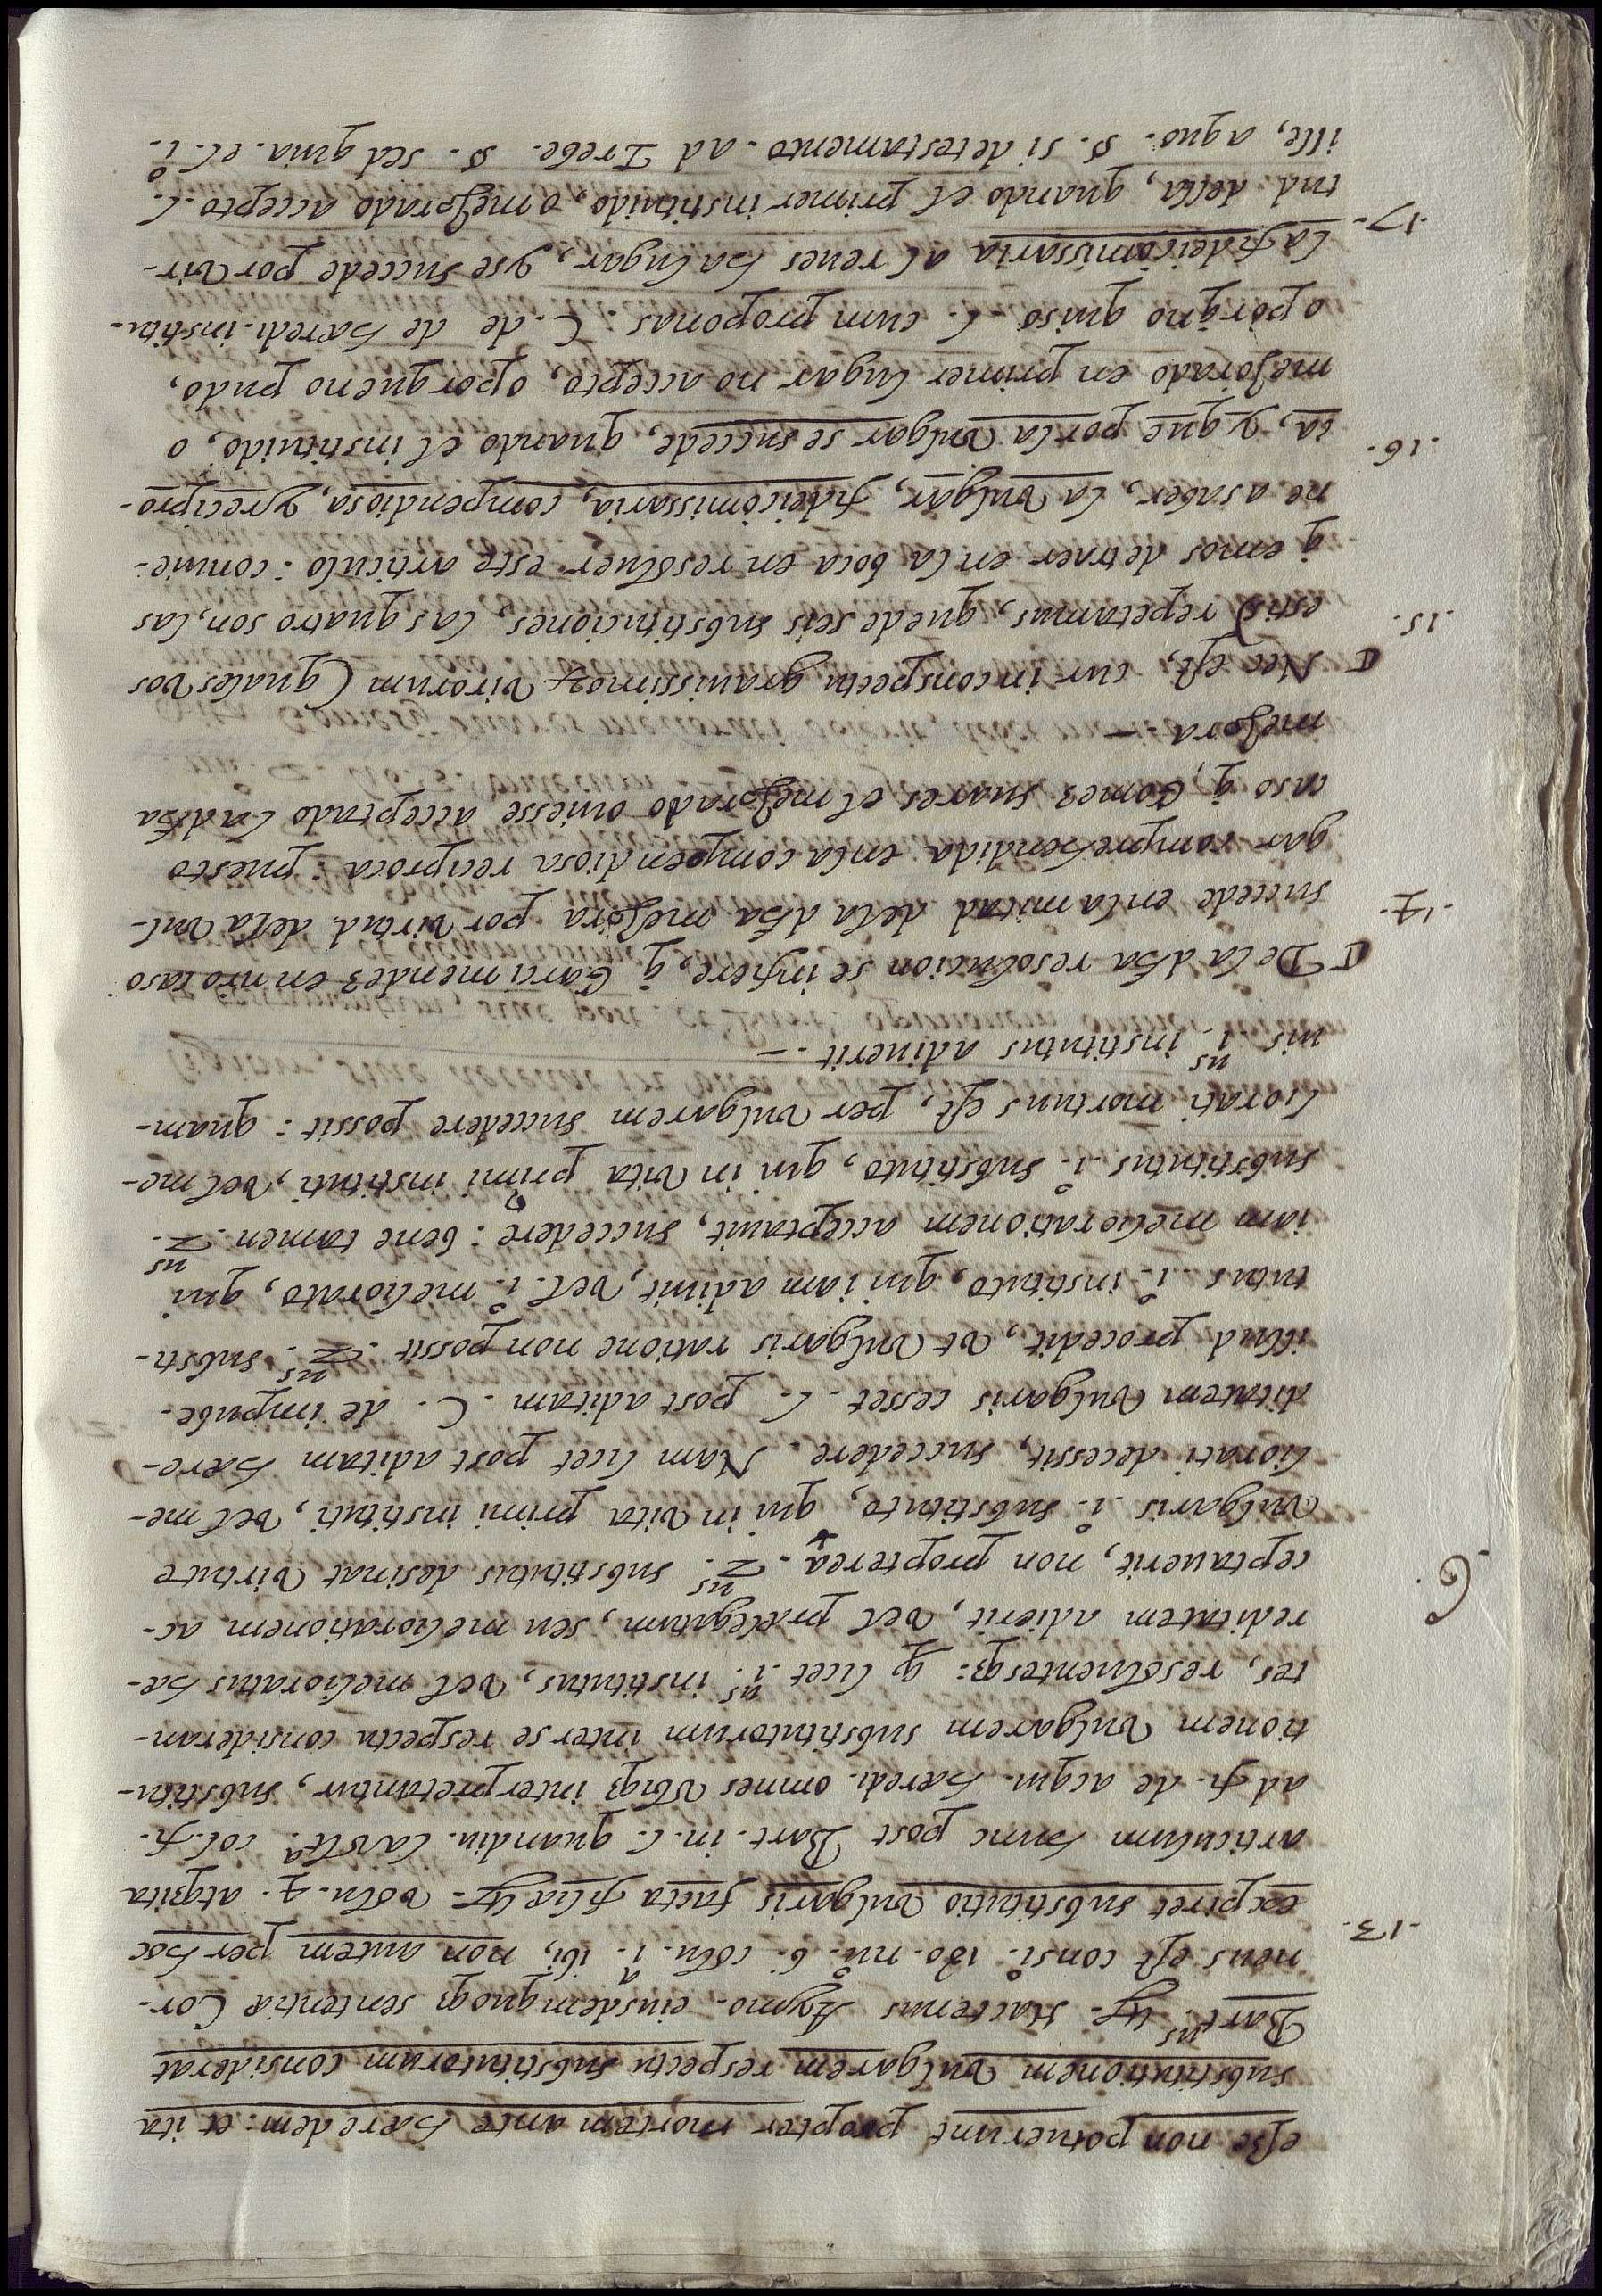 esse non potuerunt propter mortem ante hæredem: et ita
substitutionem vulgarem respectu substitutorum considerat
Bart.us Hactenus Aymo. eiusdemquoqȝ sententiæ Cor-
neus est consi.o 130. nu.o 6. colu. i.a ibi, non autem per hoc
13.
expiret substitutio vulgaris facta filiæ colu. 4. atqȝita
articulum hunc post Bart. in. l. quandiu. la col.ta col. fi.
ad fi. de acqui. hæredi. omnes vbiqȝ interpretantur, substitu-
tionem vulgarem substitutorum inter se respectu consideran-
tes, resoluentesqȝ: q̃ licet i.us institutus, vel melioratus hæ-
reditatem adierit, vel prælegatum, seu meliorationem ac-
6.
ceptauerit, non propterea. 2.us substitutus desinat virtute
vulgaris i.o substituto, qui in vita primi instituti, vel me-
liorati decessit, succedere. Nam licet post aditam hære-
ditatem vulgaris cesset. l. post aditam. C. de impube.
illud procedit, vt vulgaris ratione non possit. 2.us substi-
tutus i.o instituto, qui iam adiuit, vel. i.o meliorato, qui
iam meliorationem acceptauit, succedere: bene tamen 2.us
substitutus i.o substituto, qui in vita primi instituti, vel me-
liorati mortuus est, per vulgarem succedere possit: quam-
uis i.us institutus adiuerit. —
De la dha resolucion se infiere, q̃ Garci mendez en nro caso
14.
succede enla mitad dela dha mejora por virtud dela vul-
gar comprehendida enla compendiosa reciproca: puesto
caso q̃, Gomez suares el mejorado ouiesse acceptado la dha
mejora. —
Nec est, cur in conspectu grauissimoꝝ virorum (quales vos
15.
estis) repetamus, quede seis substituciones, las quatro son, las
q̃ emos detraer enla boca en resoluer este articulo: conuie-
ne a saber, la vulgar, fideicomissaria, compendiosa, yrecipro-
16.
ca, y que porla vulgar se succede, quando el instituido, o
mejorado en primer lugar no accepto, oporqueno pudo,
o porq̃no quiso. l. cum proponas. C. de hæredi. institu.
la fideicomissaria al reues ha lugar, yse succede por vir-
17.
tud della, quando el primer instituido, o mejorado accepto. l.
ille, a quo. §. si de testamento. ad Trebe. §. sed quia. el. i.o